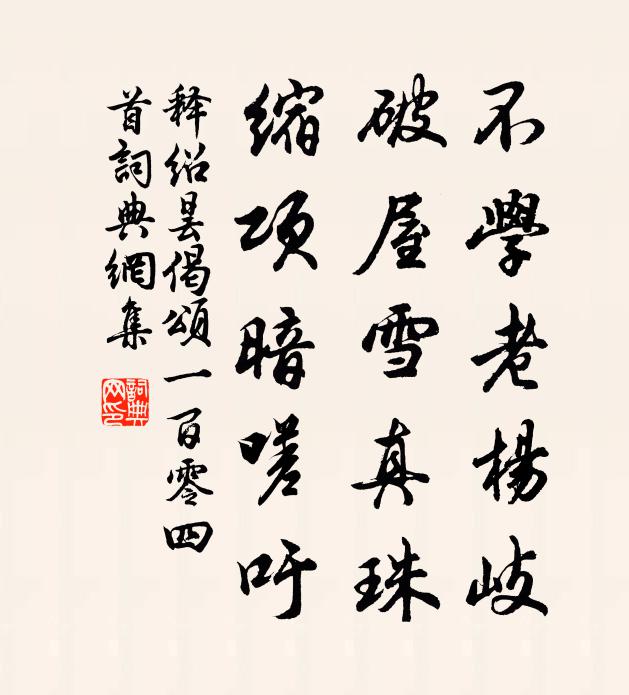 不學老楊岐
破屋雪真珠
縮項暗嗟吁
释紹昙偈頌一百零四
首詞典網集
詞典网印